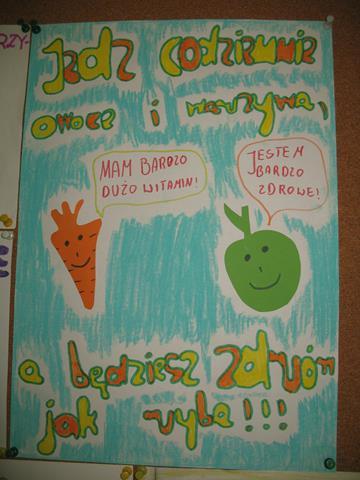 RZY-
Jedz codziennie
owoce i warzywa,
MAM BARDZO
DUŻO WITAMIN!
JESTEM
BARDZO
ZDROWE!
a będziesz zdrów
jak ryba!!!